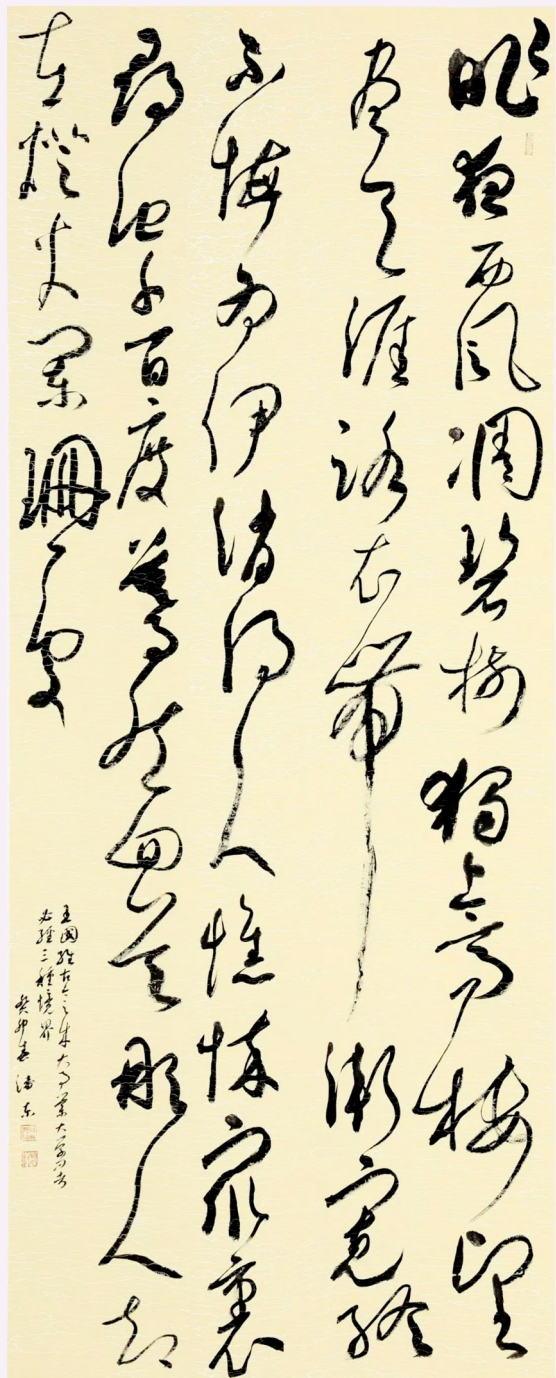 昨夜西風凋碧樹獨上高樓望
盡天涯路衣帶漸寬終
不悔為伊消得人憔悴眾裏
尋他千百度驀然回首那人却
在燈火闌珊處
王國維古今之成大事業大學問者
必經三種境界
癸卯春